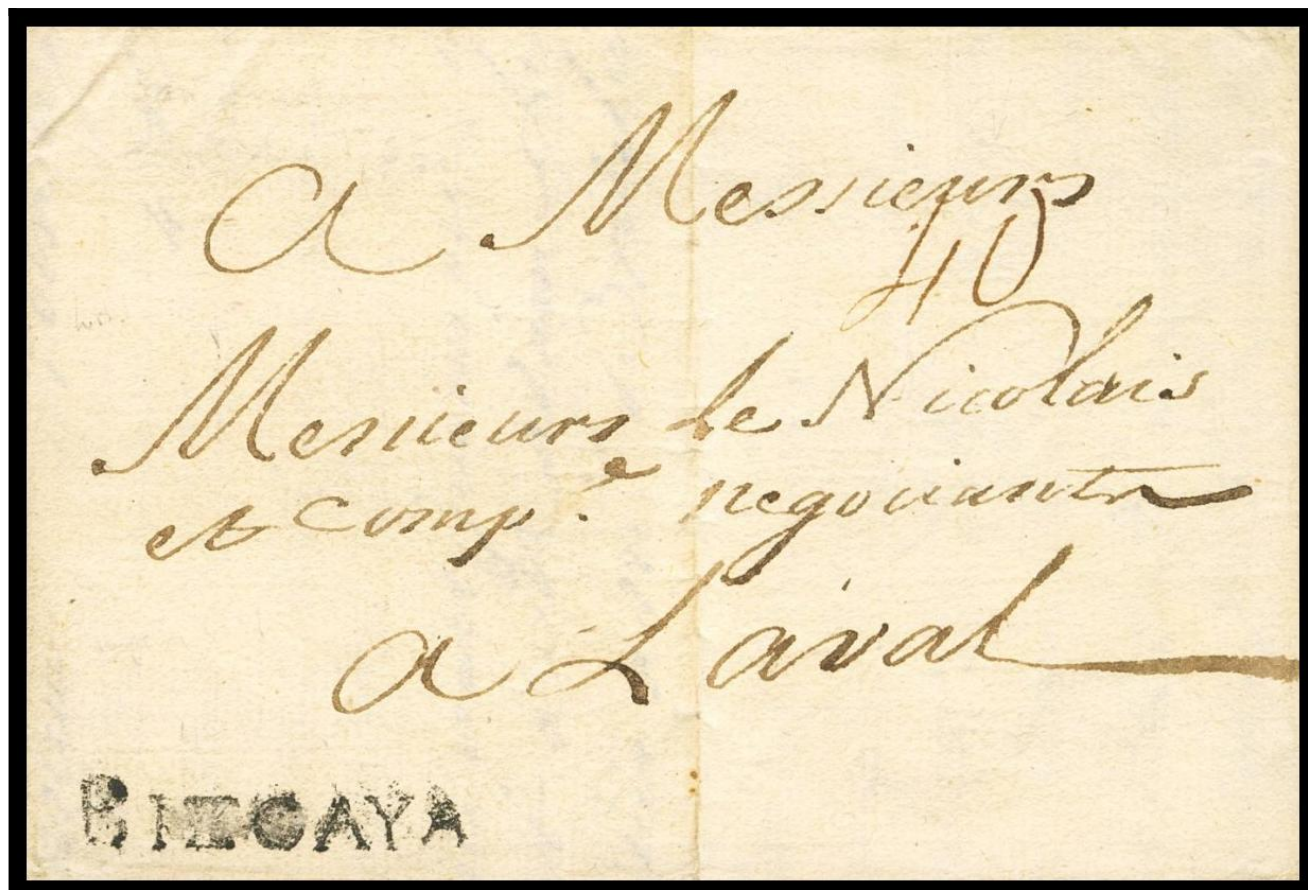 A Messieurs
40
Messieurs Le Nicolais
et Comp.e negociants
a Laval